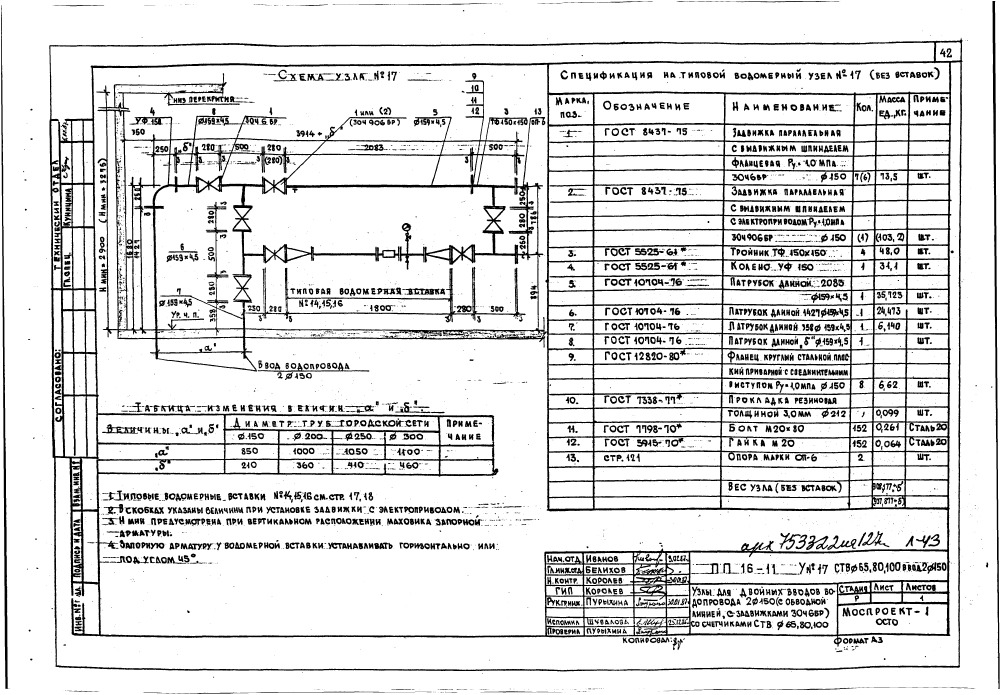 42
Схема узла №17
Низ перекрытия
4 8 1 1 или (2) 5 3 13
9
10
11
12
УФ 150 Ø159×4,5 30ч6БР (30ч906БР) Ø159×4,5 ТФ150×150 ОП-6
350
3914 + „б"
2083
250 „б" 280 500 280 500
(280)
Н мин = 2900 (Н мин = 3295)
1680
1427
6
Ø159×4,5
7
Ø159×4,5
Ур. ч. п.
280
500
280
358
250
280
394
Типовая водомерная вставка
№14,15,16
1800
250 280 280 300
„а"
Ввод водопровода
2Ø150
Таблица изменения величин „а" и „б"
Величины „а" и „б"
Диаметр труб городской сети
Приме-
чание
Ø150 Ø200 Ø250 Ø300
„а" 850 1000 1050 1100
„б" 210 360 410 460
1. Типовые водомерные вставки №14,15,16 см. стр. 17, 18
2. В скобках указаны величины при установке задвижки с электроприводом.
3. Н мин предусмотрена при вертикальном расположении маховика запорной
арматуры.
4. Запорную арматуру у водомерной вставки устанавливать горизонтально или
под углом 45°
Спецификация на типовой водомерный узел №17 (без вставок)
Марка, поз. Обозначение Наименование Кол. Масса ед., кг. Примечание
1. ГОСТ 8437-75 Задвижка параллельная
с выдвижным шпинделем
фланцевая Ру=1,0 МПа
30ч6БР Ø150 7(6) 73,5 шт.
2. ГОСТ 8437-75 Задвижка параллельная
с выдвижным шпинделем
с электроприводом Ру=1,0МПа
30ч906БР Ø150 (1) (103,2) шт.
3. ГОСТ 5525-61* Тройник ТФ 150×150 4 48,0 шт.
4. ГОСТ 5525-61* Колено УФ 150 1 31,1 шт.
5. ГОСТ 10704-76 Патрубок длиной 2083
Ø159×4,5 1 35,723 шт.
6. ГОСТ 10704-76 Патрубок длиной 1427 Ø159×4,5 1 24,473 шт.
7. ГОСТ 10704-76 Патрубок длиной 358 Ø159×4,5 1 6,140 шт.
8. ГОСТ 10704-76 Патрубок длиной „б" Ø159×4,5 1 шт.
9. ГОСТ 12820-80* Фланец круглый стальной плос-
кий приварной с соединительным
выступом Ру=1,0МПа Ø150 8 6,62 шт.
10. ГОСТ 7338-77* Прокладка резиновая
толщиной 3,0мм Ø212 0,099 шт.
11. ГОСТ 7798-70* Болт М20×80 152 0,261 Сталь20
12. ГОСТ 5915-70* Гайка М20 152 0,064 Сталь20
13. стр. 121 Опора марки ОП-6 2 шт.
Вес узла (без вставок)
арх 753322 л-43
Нач. отд. Иванов
Гл.инж.отд. Белихов
Н.контр. Королев
ГИП Королев
Рук.гр.инж. Пурыхина
Исполнил Шувалова
Проверил Пурыхина
ПП 16-11 У№17 СТВØ65,80,100 ввод 2Ø150
Узлы для двойных вводов во-
допровода 2Ø150 (с обводной
линией, с задвижками 30ч6БР)
со счетчиками СТВ Ø65,80,100
Стадия Лист Листов
Р 1
Моспроект-1
ОСТО
Копировал:
Формат А3
Технический отдел
Гл.спец. Куницина
Согласовано:
Взам.инв.№
Подпись и дата
Инв.№ од.